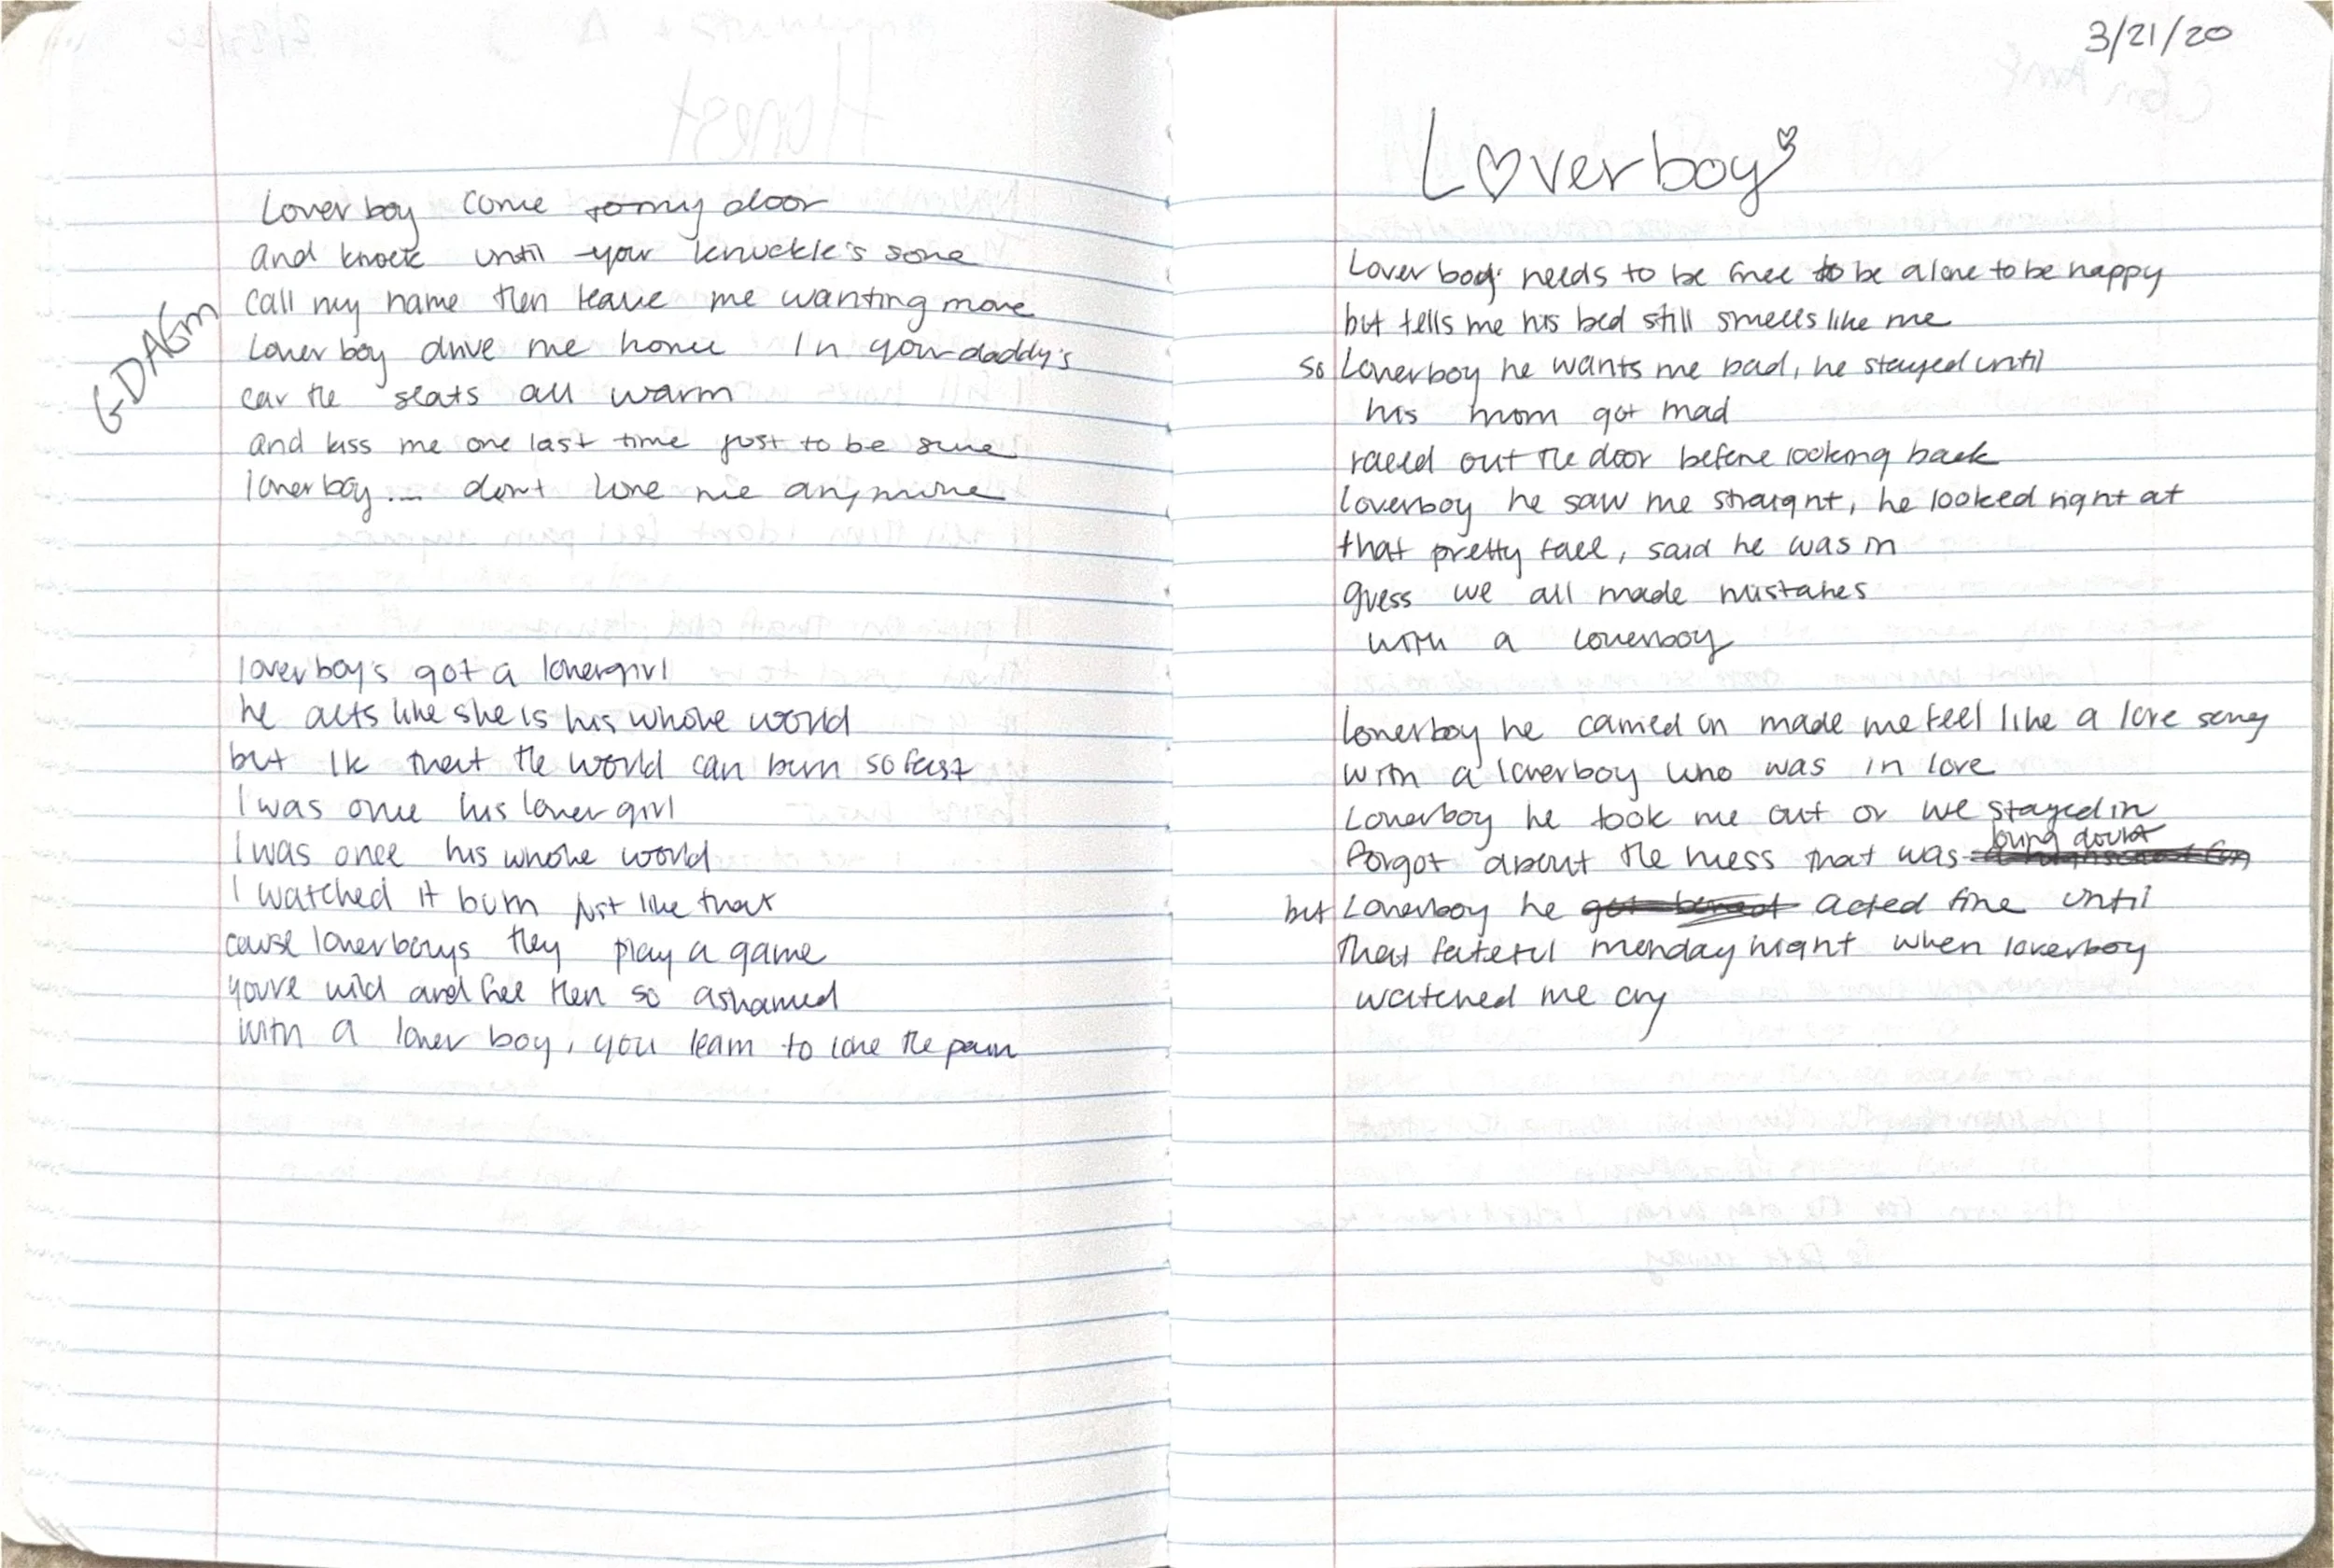 Lover boy come to my door
and knock until your knuckle's sore
call my name then leave me wanting more
Lover boy drive me home In your daddy's
car the seats all warm
and kiss me one last time just to be sure
loverboy.... dont love me anymore
GDAGm
loverboy's got a lovergirl
he acts like she is his whole world
but Ik that the world can burn so fast
I was once his lover girl
I was once his whole world
I watched it burn just like that
cause loverboys they play a game
youre wild and free then so ashamed
with a lover boy, you learn to love the pain
3/21/20
Loverboy
Lover boy needs to be free to be alone to be happy
but tells me his bed still smells like me
so Loverboy he wants me bad, he stayed until
his mom got mad
raced out the door before looking back
loverboy he saw me straight, he looked right at
that pretty face, said he was in
guess we all made mistakes
with a loverboy
Loverboy he carried on made me feel like a love song
with a loverboy who was in love
Loverboy he took me out or we stayed in
forgot about the mess that was
but Loverboy he acted fine until
that fateful monday night when loverboy
watched me cry